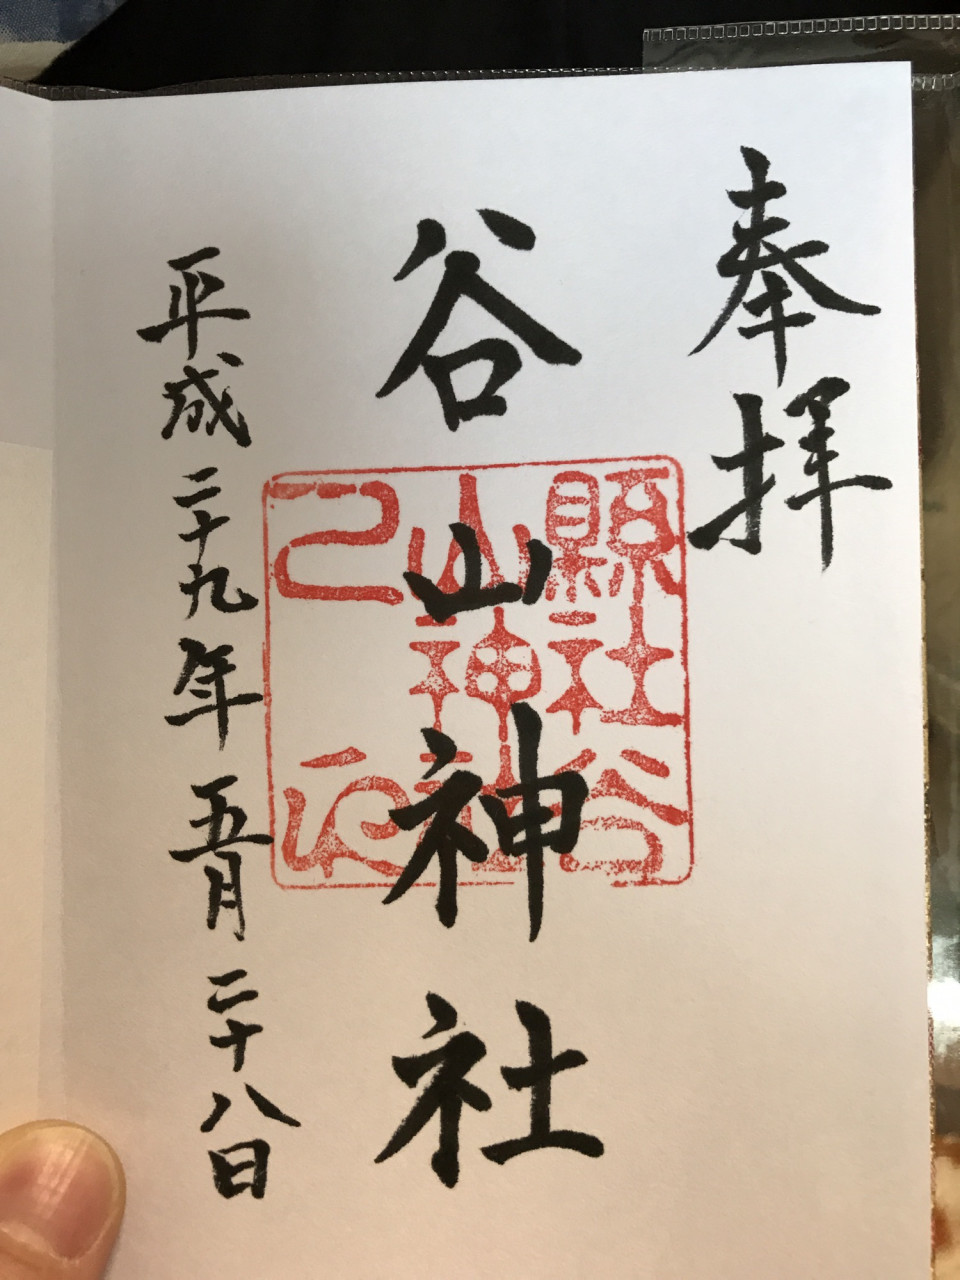 奉拝
谷山神社
縣社谷
山神社
平成二十九年五月二十八日